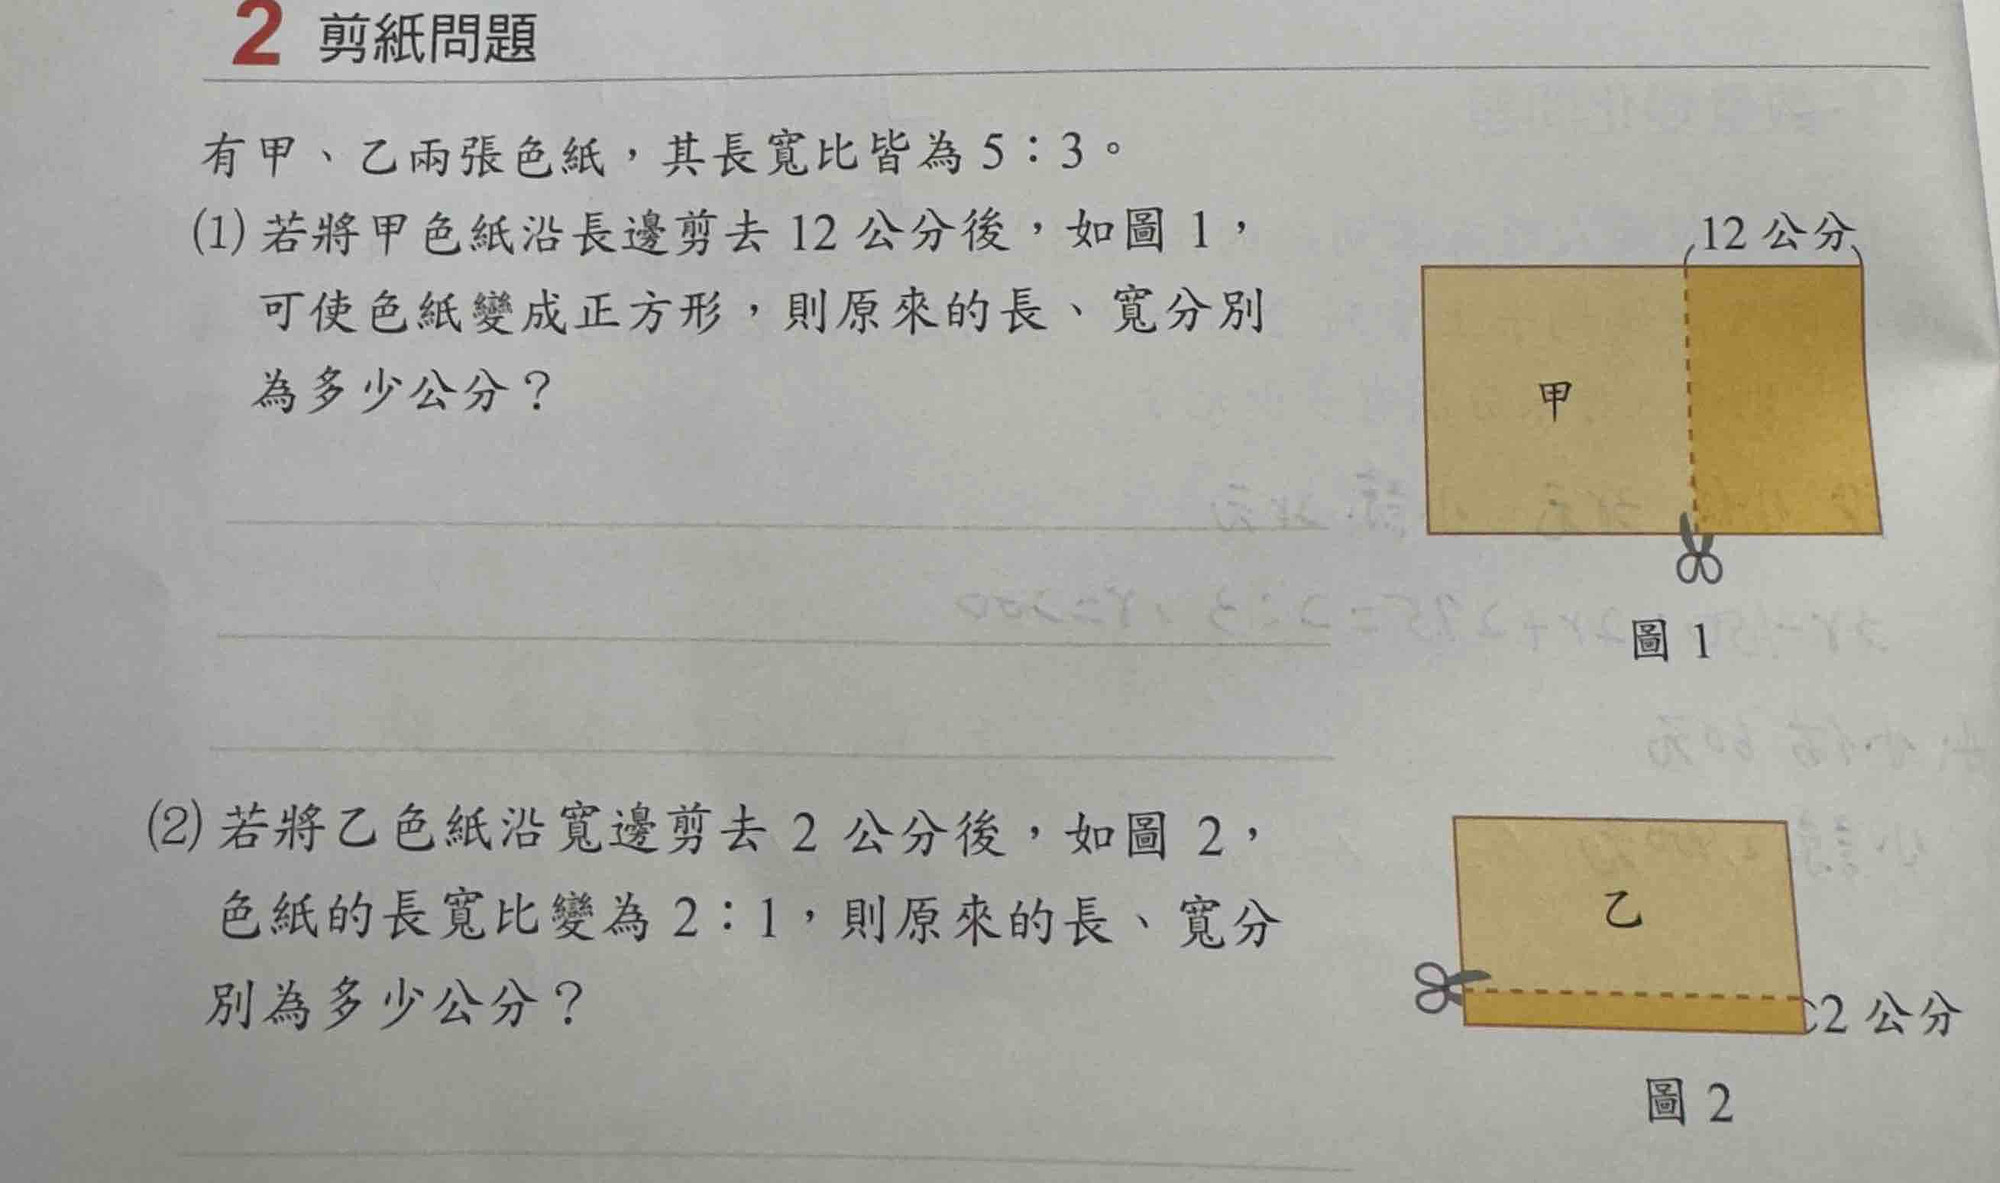 2 剪紙問題
有甲、乙兩張色紙，其長寬比皆為5：3。
(1) 若將甲色紙沿長邊剪去12公分後，如圖1，
可使色紙變成正方形，則原來的長、寬分別
為多少公分？
12公分
甲
圖1
(2) 若將乙色紙沿寬邊剪去2公分後，如圖2，
色紙的長寬比變為2：1，則原來的長、寬分
別為多少公分？
乙
2公分
圖2